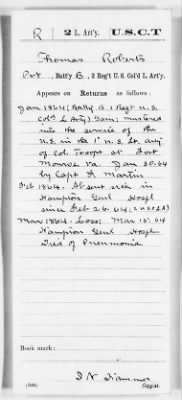 R 2 L. Art'y. U.S.C.T
Thomas Roberts
Pvt, Batt'y B, 2 Reg't U.S. Col'd L. Art'y.
Appears on Returns as follows:
Jan 1864, Batty B 1 Regt U.S.
Cold L. Arty, Jan; mustered
into the service of the
U.S. in the 1" U.S. Lt. Arty
of Col. Troops at Fort
Monroe Va. Jan 30.64
by Capt A Martin
Feb 1864. Absent sick in
Hampton Genl Hospl
since Feb 26.64,
Mar 1864. Loss: Mar 15.64
Hampton Genl Hospl
Died of Pneumonia
Book mark:
(546)
Copyist.